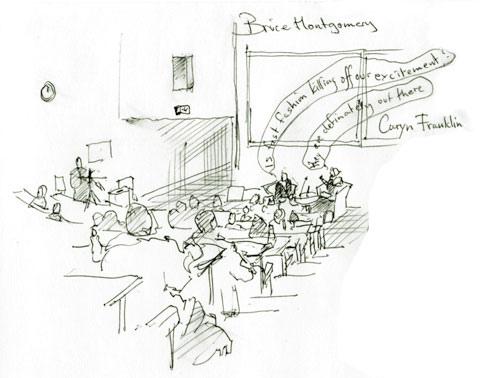 Brice Montgomery
Is fast fashion killing off our excitement?
they are definately out there
Caryn Franklin